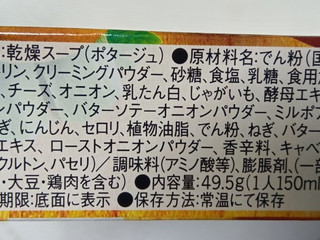 :乾燥スープ(ポタージュ) ●原材料名:でん粉(国
リン、クリーミングパウダー、砂糖、食塩、乳糖、食用
、チーズ、オニオン、乳たん白、じゃがいも、酵母エキ
ンパウダー、バターソテーオニオンパウダー、ミルポ
ぎ、にんじん、セロリ、植物油脂、でん粉、ねぎ、バター
エキス、ローストオニオンパウダー、香辛料、キャベ
クルトン、パセリ)/調味料(アミノ酸等)、膨脹剤、(一部
・大豆・鶏肉を含む) ●内容量:49.5g(1人150m
期限:底面に表示 ●保存方法:常温にて保存